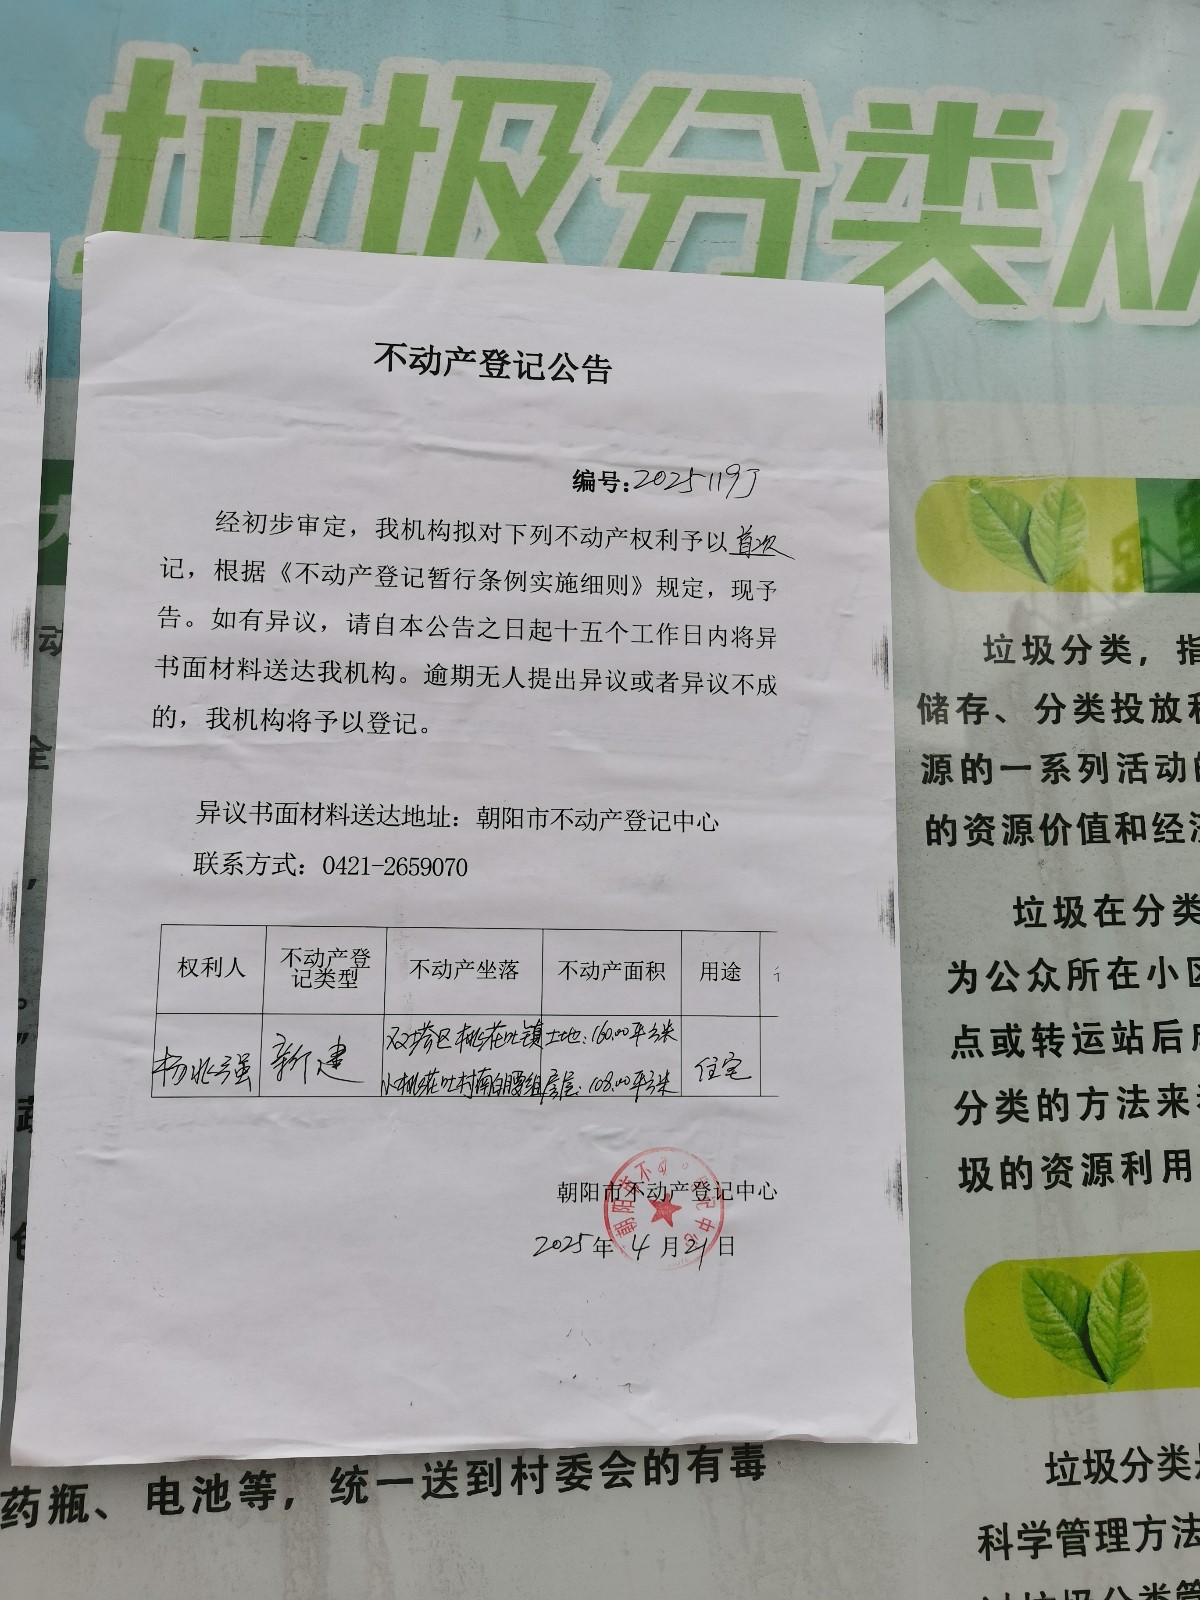 垃圾分类从
不动产登记公告
编号:2025119J
经初步审定，我机构拟对下列不动产权利予以首次
记，根据《不动产登记暂行条例实施细则》规定，现予
告。如有异议，请自本公告之日起十五个工作日内将异
书面材料送达我机构。逾期无人提出异议或者异议不成
的，我机构将予以登记。
异议书面材料送达地址：朝阳市不动产登记中心
联系方式：0421-2659070
权利人 不动产登记类型 不动产坐落 不动产面积 用途
杨兆强 新建 双塔区桃花吐镇 土地：160.00平方米 住宅
小桃花吐村南白腰组 房屋：108.00平方米
朝阳市不动产登记中心
2025年4月21日
垃圾分类，指
储存、分类投放和
源的一系列活动的
的资源价值和经济
垃圾在分类
为公众所在小区
点或转运站后
分类的方法来
圾的资源利用
垃圾分类
科学管理方法
药瓶、电池等，统一送到村委会的有毒